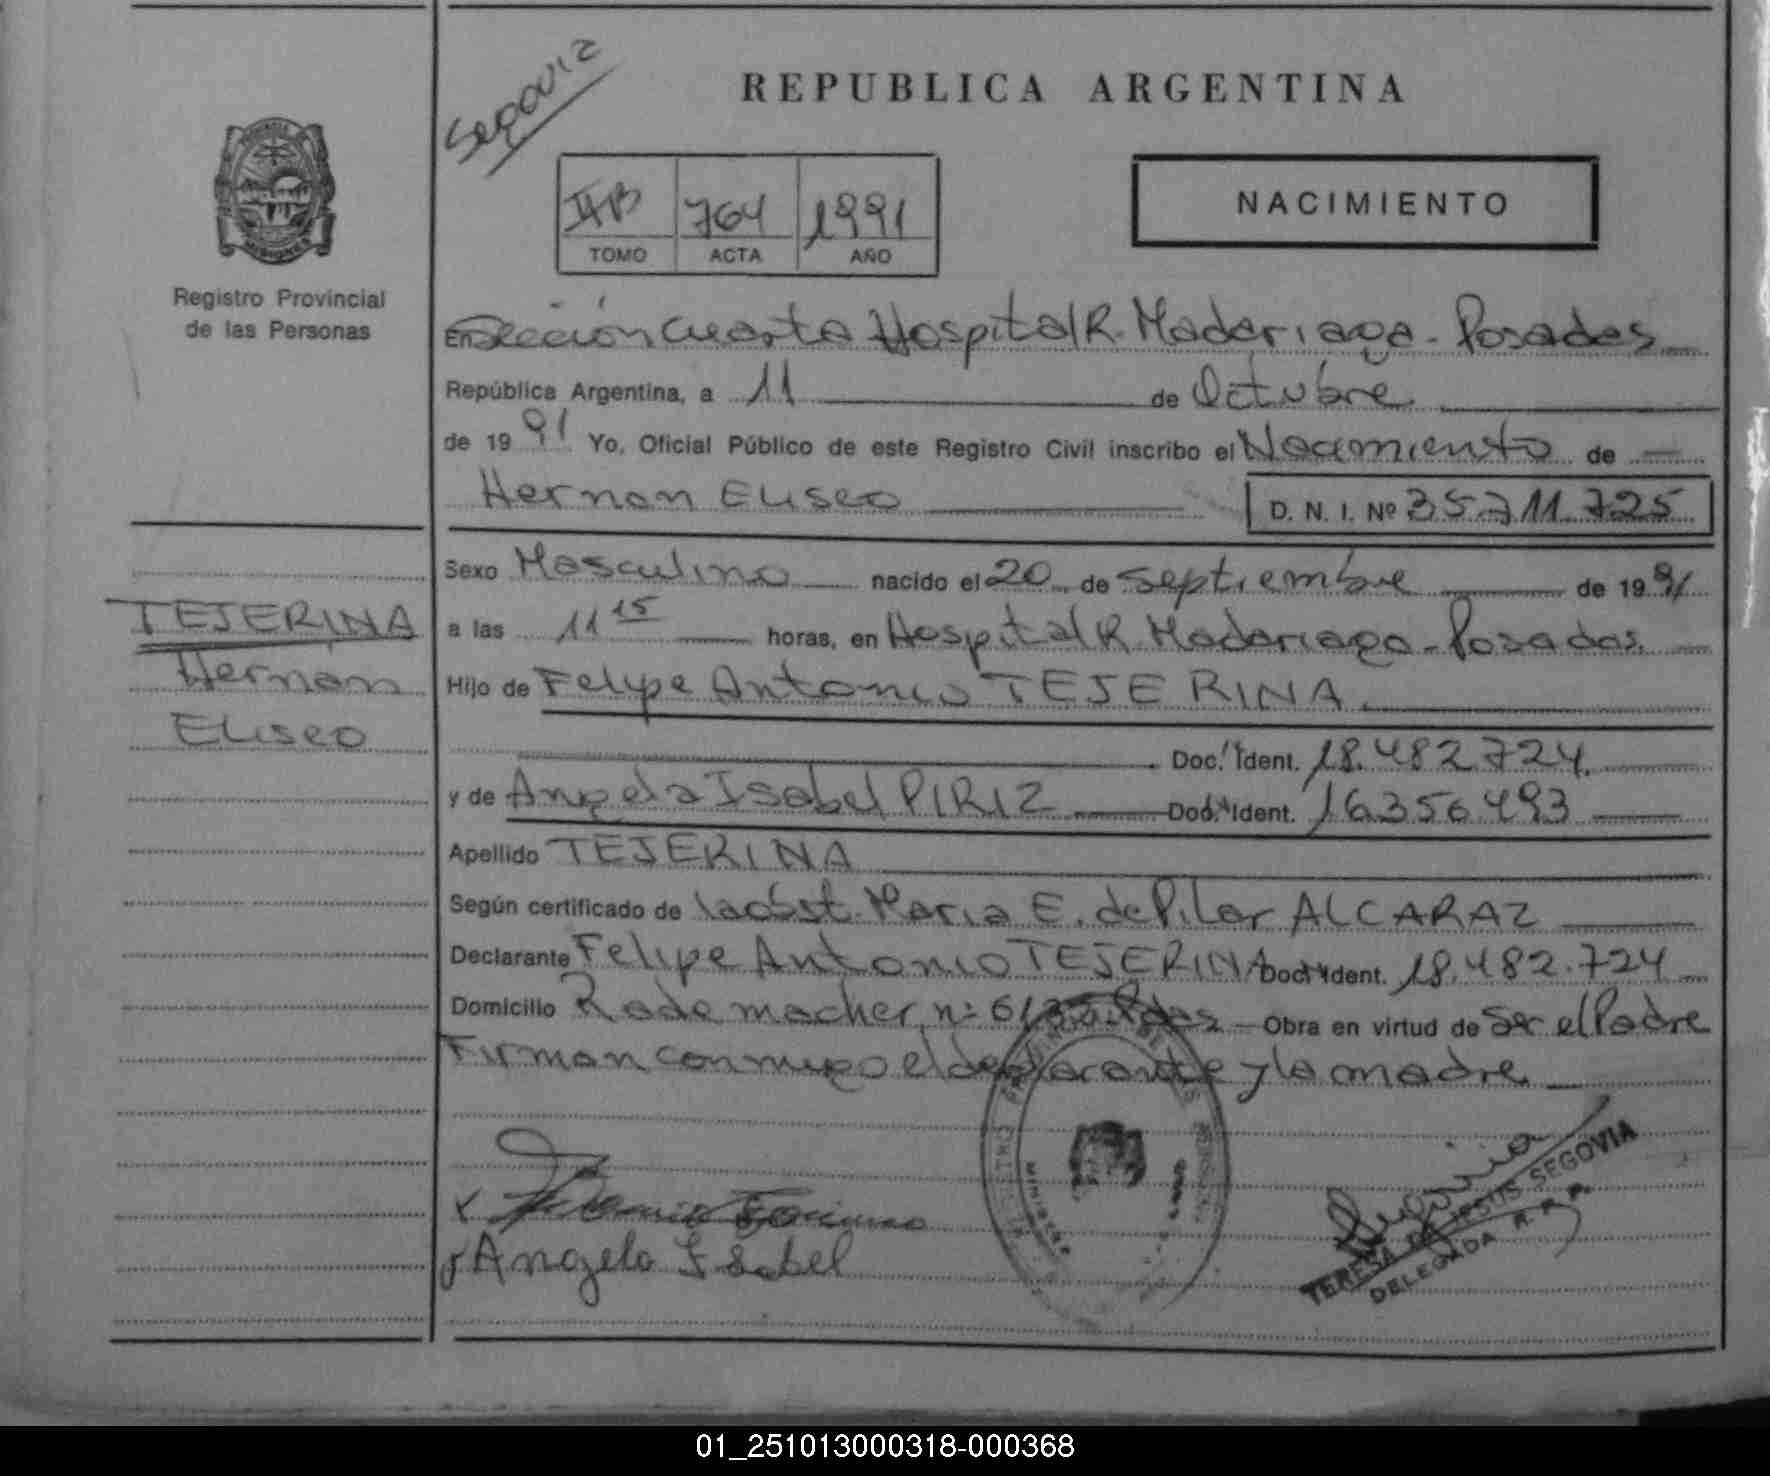 Segovia
REPUBLICA ARGENTINA
NACIMIENTO
II B 764 1991
TOMO ACTA AÑO
Registro Provincial
de las Personas
En Sección Cuarta Hospital R. Madariaga - Posadas
República Argentina, a 11 de Octubre
de 1991 Yo, Oficial Público de este Registro Civil inscribo el Nacimiento de
Hernan Eliseo D. N. I. Nº 35.711.725
Sexo Masculino nacido el 20 de Septiembre de 1991
a las 11 15 horas, en Hospital R. Madariaga - Posadas
Hijo de Felipe Antonio TEJERINA
Doc. Ident. 18.482.724
y de Angela Isabel PIRIZ Doc. Ident. 16.356.493
Apellido TEJERINA
Según certificado de la obst. Maria E. de Pilar ALCARAZ
Declarante Felipe Antonio TEJERINA Doc. Ident. 18.482.724
Domicilio Rademacher nº Pdas Obra en virtud de Ser el Padre
Firman conmigo el declarante y la madre
TEJERINA
Hernan
Eliseo
Angela Isabel
TERESA DE JESUS SEGOVIA
DELEGADA R. P. P.
01_251013000318-000368